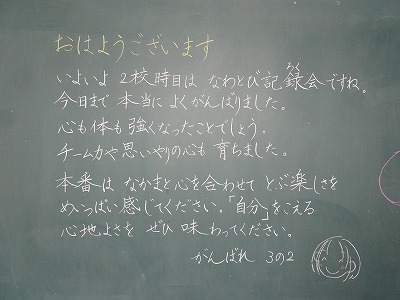 おはようございます
いよいよ 2校時目は なわとび記録会ですね。
ろく
今日まで 本当に よくがんばりました。
心も体も強くなったことでしょう。
チーム力や思いやりの心も 育ちました。
本番は なかまと心を合わせて とぶ楽しさを
めいっぱい感じてください。「自分」をこえる
心地よさを ぜひ 味わってください。
がんばれ 3の2